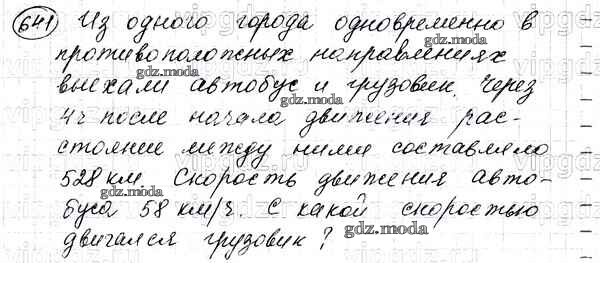 641 Из одного города одновременно в
противоположных направлениях
gdz.moda
выехали автобус и грузовик. Через
gdz.moda
4ч после начала движения рас-
стояние между ними составляло
528 км. Скорость движения авто-
gdz.moda
буса 58 км/ч. С какой скоростью
gdz.moda
двигался грузовик?
gdz.moda